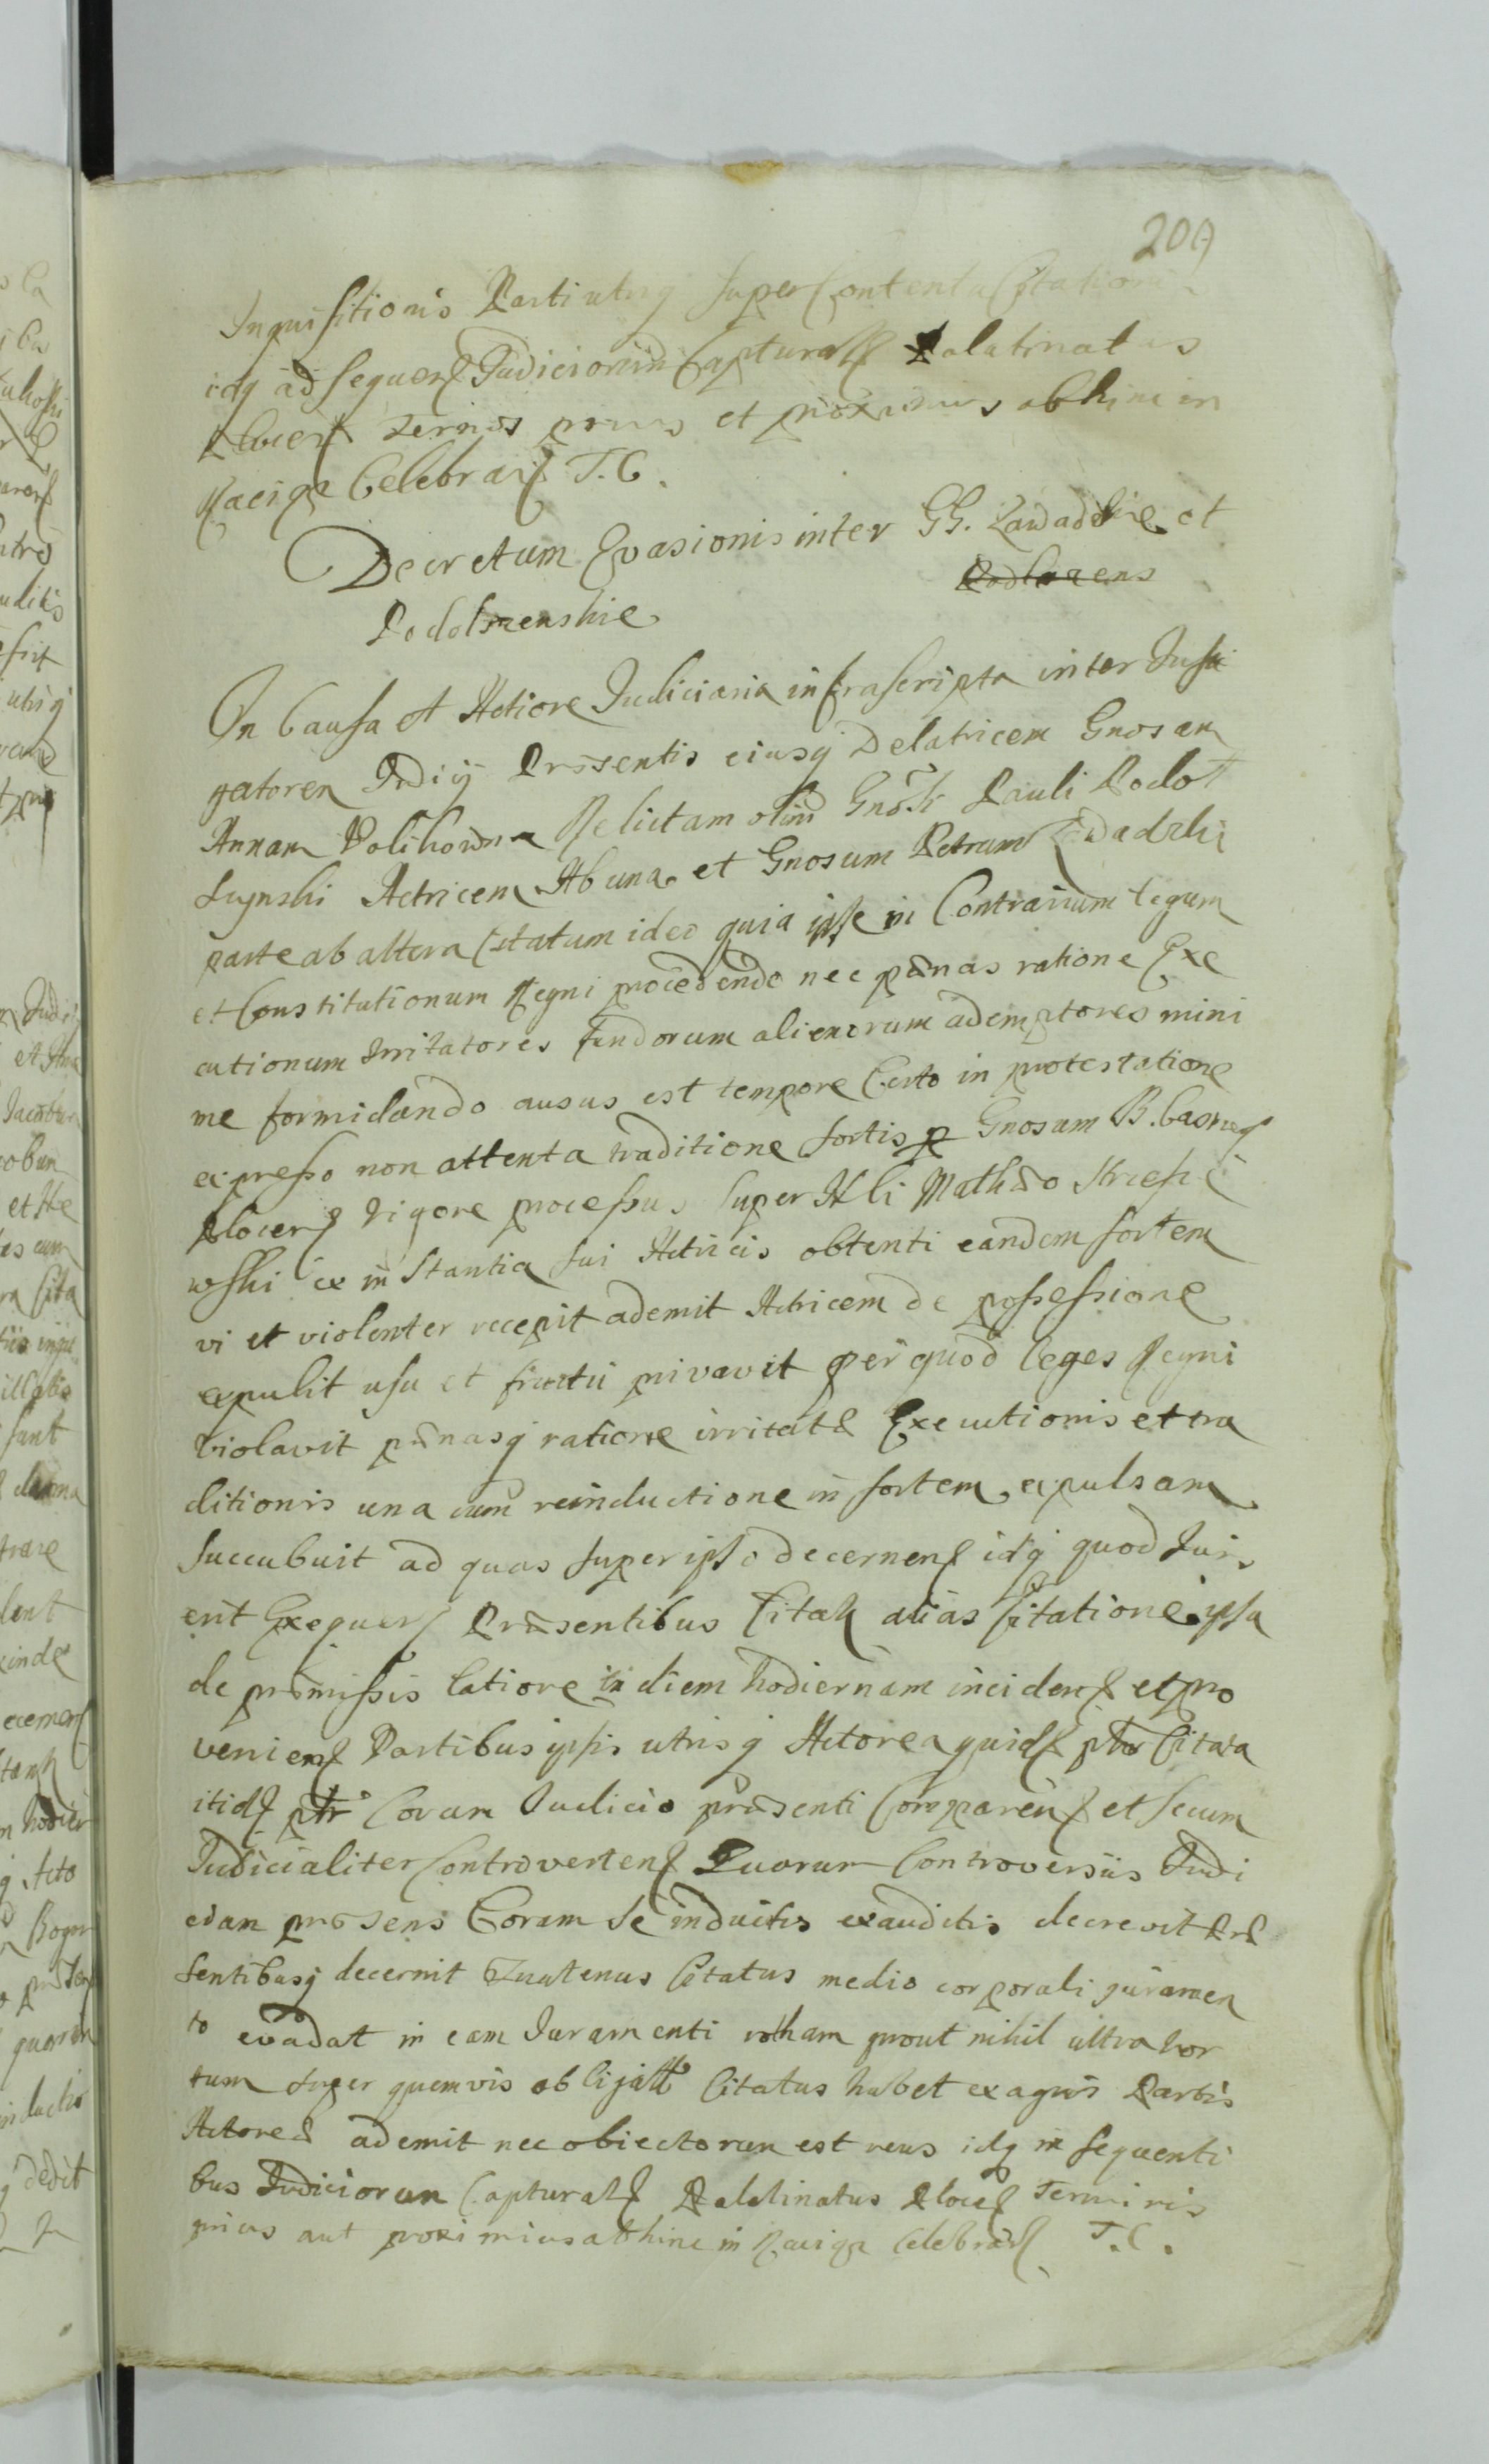 209
Inquisitionis Parti utrisq super Contenta Citationis
idq ad sequen Judiciorum Captural Palatinatus
Plocen terminos prius et proximius abhinc in
Raciąz Celebran T.C.
Decretum Evasionis inter GG. Zawadzkie et
Podolszenskie
In Causa et Actione Judiciaria infrascripta inter Insti
gatorem Judicij Præsentis eiusq Delatricem Gnosam
Annam Relictam olim Gnosi Pauli Podol
Actricem Ab una et Gnosum Petrum Zawadzki
parte ab altera Citatum ideo quia ipse in Contrarium legum
et Constitutionum Regni procedendo nec pænas ratione Exe
cutionum Irritatores fundorum alienorum ademptores mini
me formidando ausus est tempore Certo in protestatione
expresso non attenta traditione sortis p Gnosum B. Castren
Plocen vigore processus super Nbli Mathæo
wski ex in Stantia sui Actricis obtenti eandem sortem
vi et violenter recepit ademit Actricem de possessione
expulit usu et fructu privavit per quod leges Regni
violavit pænasq ratione irritatæ Executionis et tra
ditionis una cum reinductione in sortem expulsam
succubuit ad quas super ipso decernen idq quod Juris
erit Exequen Præsentibus Citat alias Citatione ipsa
de præmissis latiore in diem hodiernam inciden et pro
venien Partibus ipsis utrisq Actorea quid ptr Citata
itid ptr Coram Judicio præsenti Comparen et secum
Judicialiter Controverten Quorum Controversiis Judi
cium præsens Coram se inductis exauditis decrevit Præ
sentibusq decernit Quatenus Citatus medio corporali juramen
to evadat in eam Juramenti rotham prout nihil ultra hor
tum super quemvis obligatt Citatus habet ex agris Partis
Actoreæ ademit nec obiectorum est reus idq in sequenti
bus Judiciorum Captural Palatinatus Plocen Terminis
prius aut proximius abhinc in Raciąz Celebran T.C.